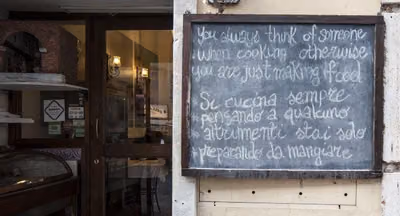 you always think of someone
when cooking otherwise
you are just making food
Si cucina sempre
pensando a qualcuno
altrimenti stai solo
preparando da mangiare